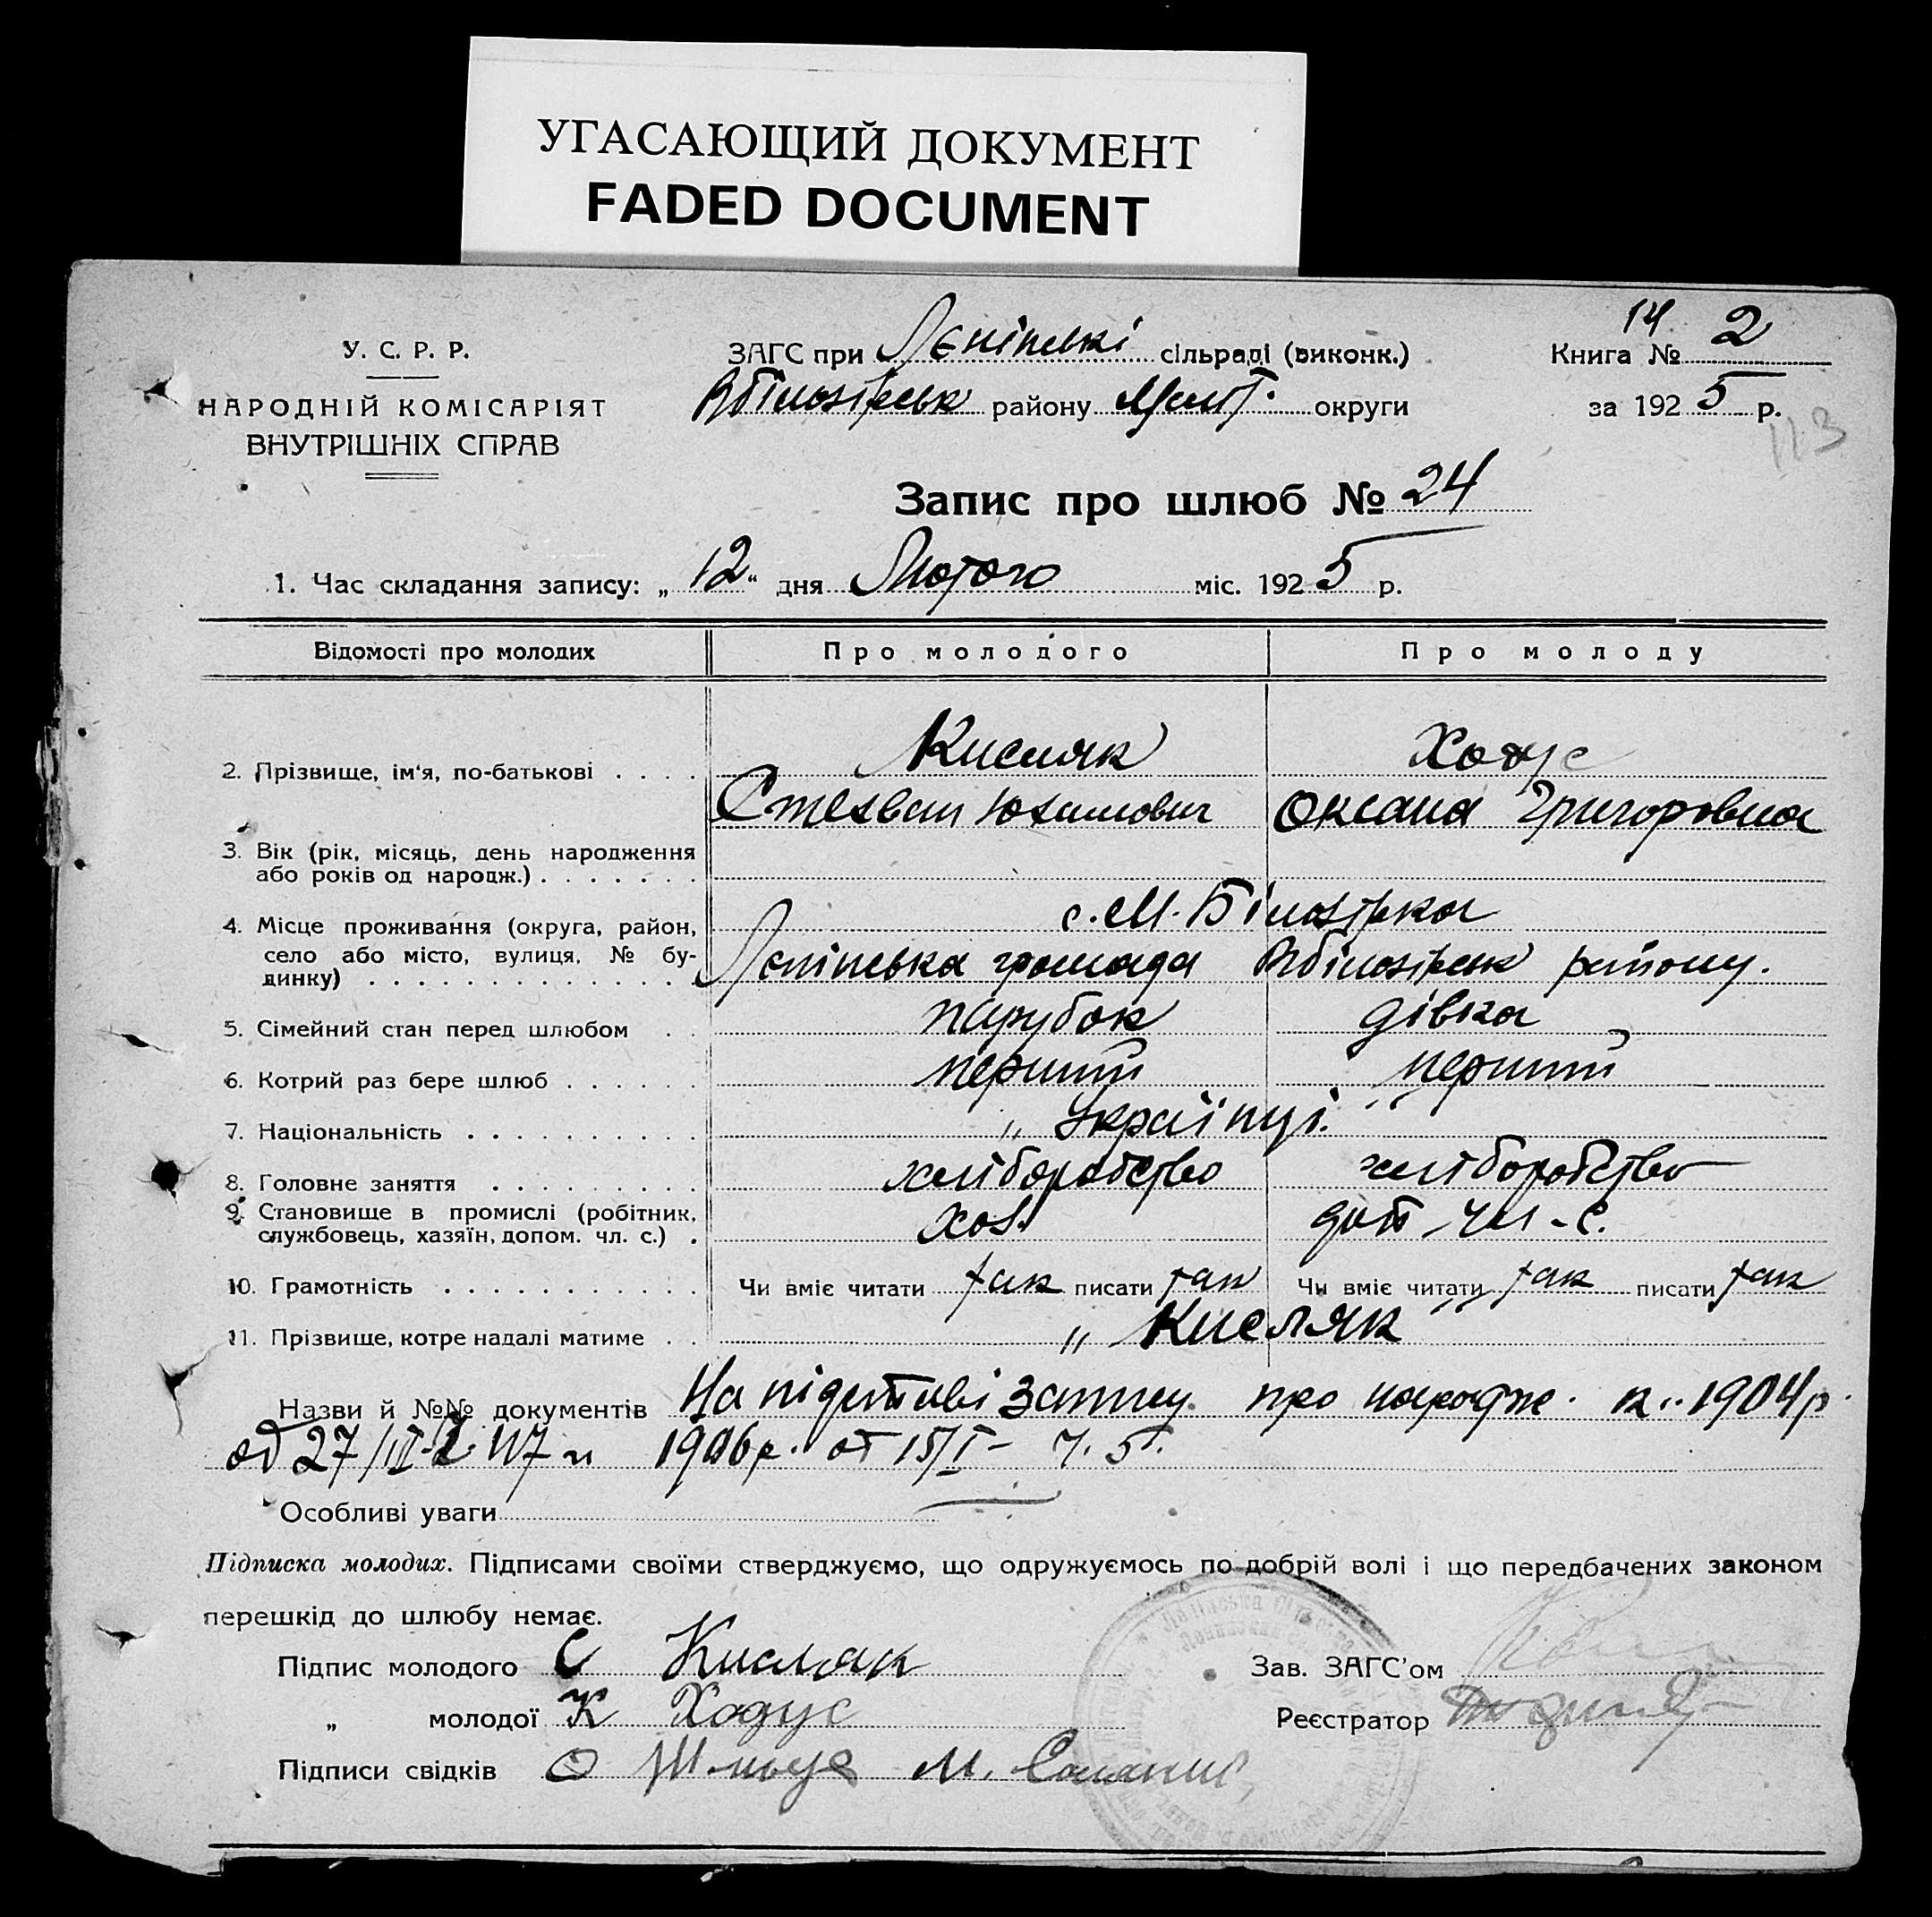 УГАСАЮЩИЙ ДОКУМЕНТ
FADED DOCUMENT
У. С. Р. Р.
НАРОДНІЙ КОМІСАРІЯТ
ВНУТРІШНІХ СПРАВ
ЗАГС при Лєнінські сільраді (виконк.)
Вбілозірськ району Меліт. округи
14 2
Книга №
за 1925 р.
113
Запис про шлюб № 24
1. Час складання запису: „12“ дня Лютого міс. 1925 р.
Відомості про молодих Про молодого Про молоду
Кисляк Ходус
2. Прізвище, ім'я, по-батькові . . . .
Степан Юхимович Оксана Григоровна
3. Вік (рік, місяць, день народження
або років од народж.) . . . . . . .
с. М. Білозірка
4. Місце проживання (округа, район,
село або місто, вулиця, № бу-
динку) . . . . . . . . . . . . . Лєнінська громада Вбілозірськ району.
5. Сімейний стан перед шлюбом . . парубок дівка
6. Котрий раз бере шлюб . . . . . . перший перший
7. Національність . . . . . . . . . . „ Українці. “
8. Головне заняття . . . . . . . . . хліборобство хліборобство
9. Становище в промислі (робітник,
службовець, хазяїн, допом. чл. с.) . хоз. доп. чл. с.
10. Грамотність . . . . . . . . . . . Чи вміє читати так писати так Чи вміє читати так писати так
11. Прізвище, котре надалі матиме . . „ Кисляк “
Назви й №№ документів На підставі запису про народж. 1904 р.
од 27/III 1906 р. от 15/I ч. 5.
Особливі уваги
Підписка молодих. Підписами своїми стверджуємо, що одружуємось по добрій волі і що передбачених законом
перешкід до шлюбу немає.
Підпис молодого С Кисляк
Зав. ЗАГС'ом
„ молодої К Ходус
Реєстратор
Підписи свідків О М.